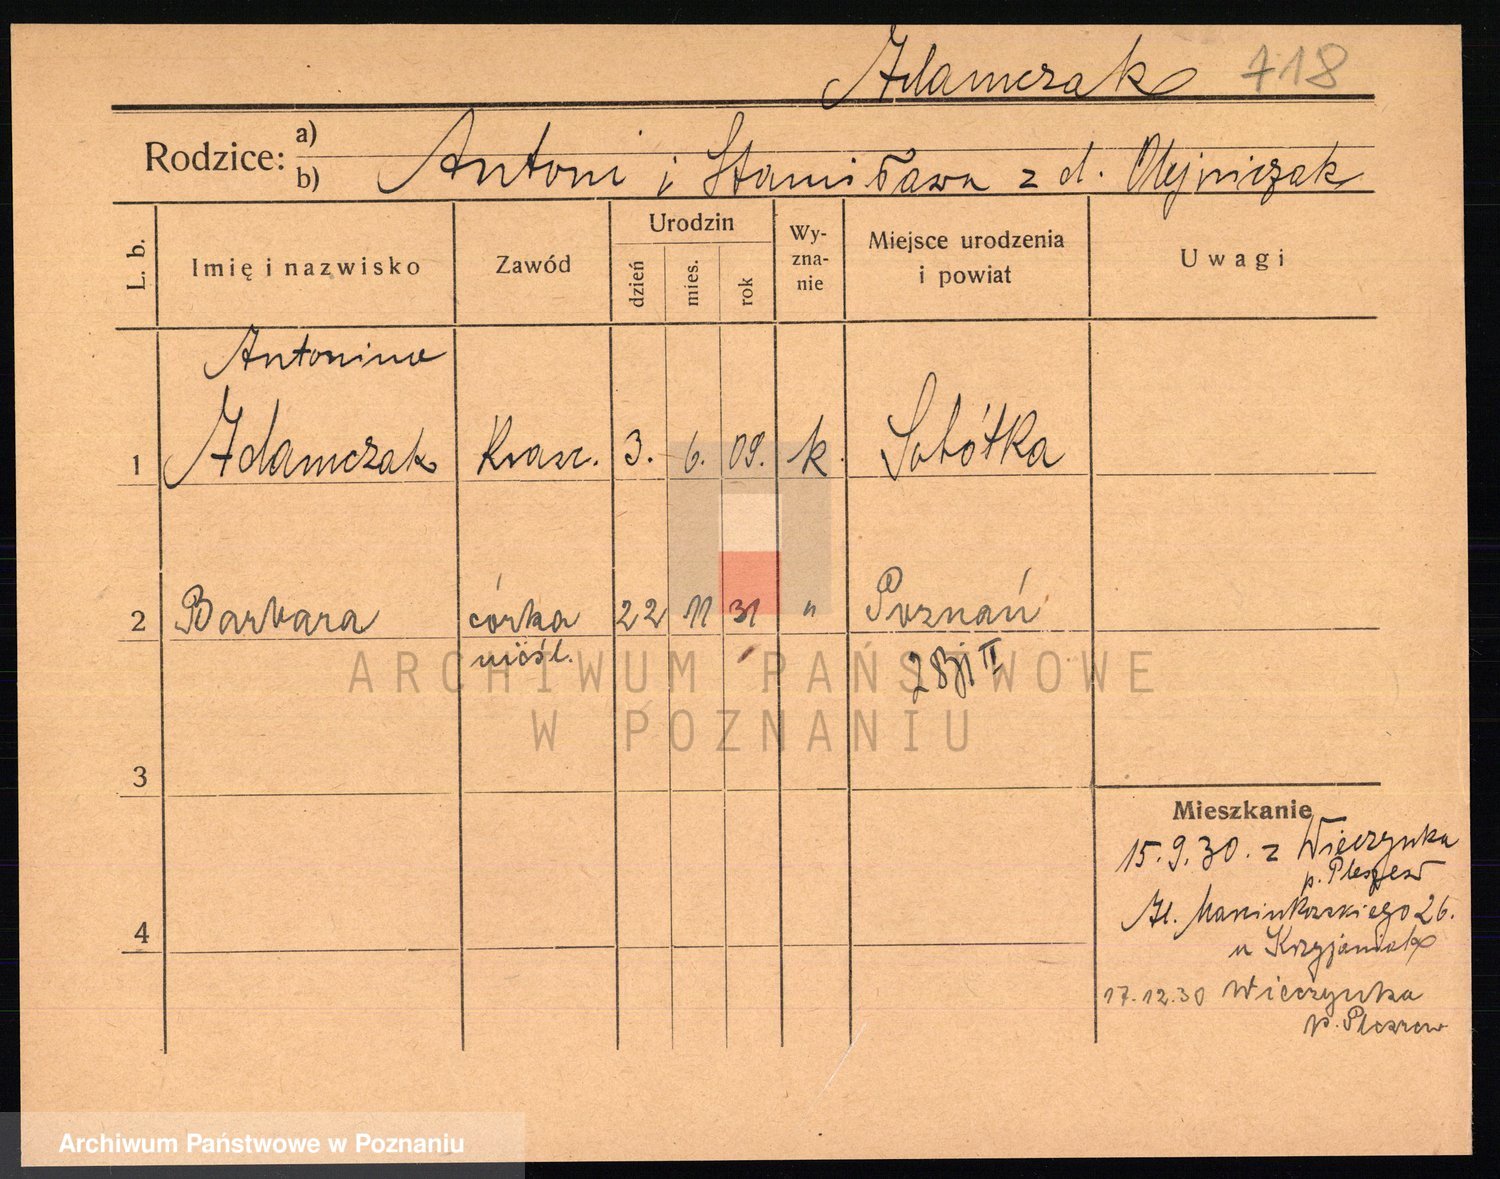 Adamczak 718
Rodzice: a)
b) Antoni i Stanisława z d. Olejniczak
L. b.
Imię i nazwisko
Zawód
Urodzin
dzień
mies.
rok
Wy-
zna-
nie
Miejsce urodzenia
i powiat
Uwagi
Antonina
1 Adamczak Krawc. 3. 6. 09. k. Sobótka
2 Barbara córka 22 11 31 " Poznań
nieśl.
ARCHIWUM PAŃSTWOWE
W POZNANIU
3
Mieszkanie
15.9.30. z Wieczynka
p. Pleszew
4
Al. Marcinkowskiego 26.
u Krzyżaniak
17.12.30 Wieczynka
p. Pleszew
Archiwum Państwowe w Poznaniu